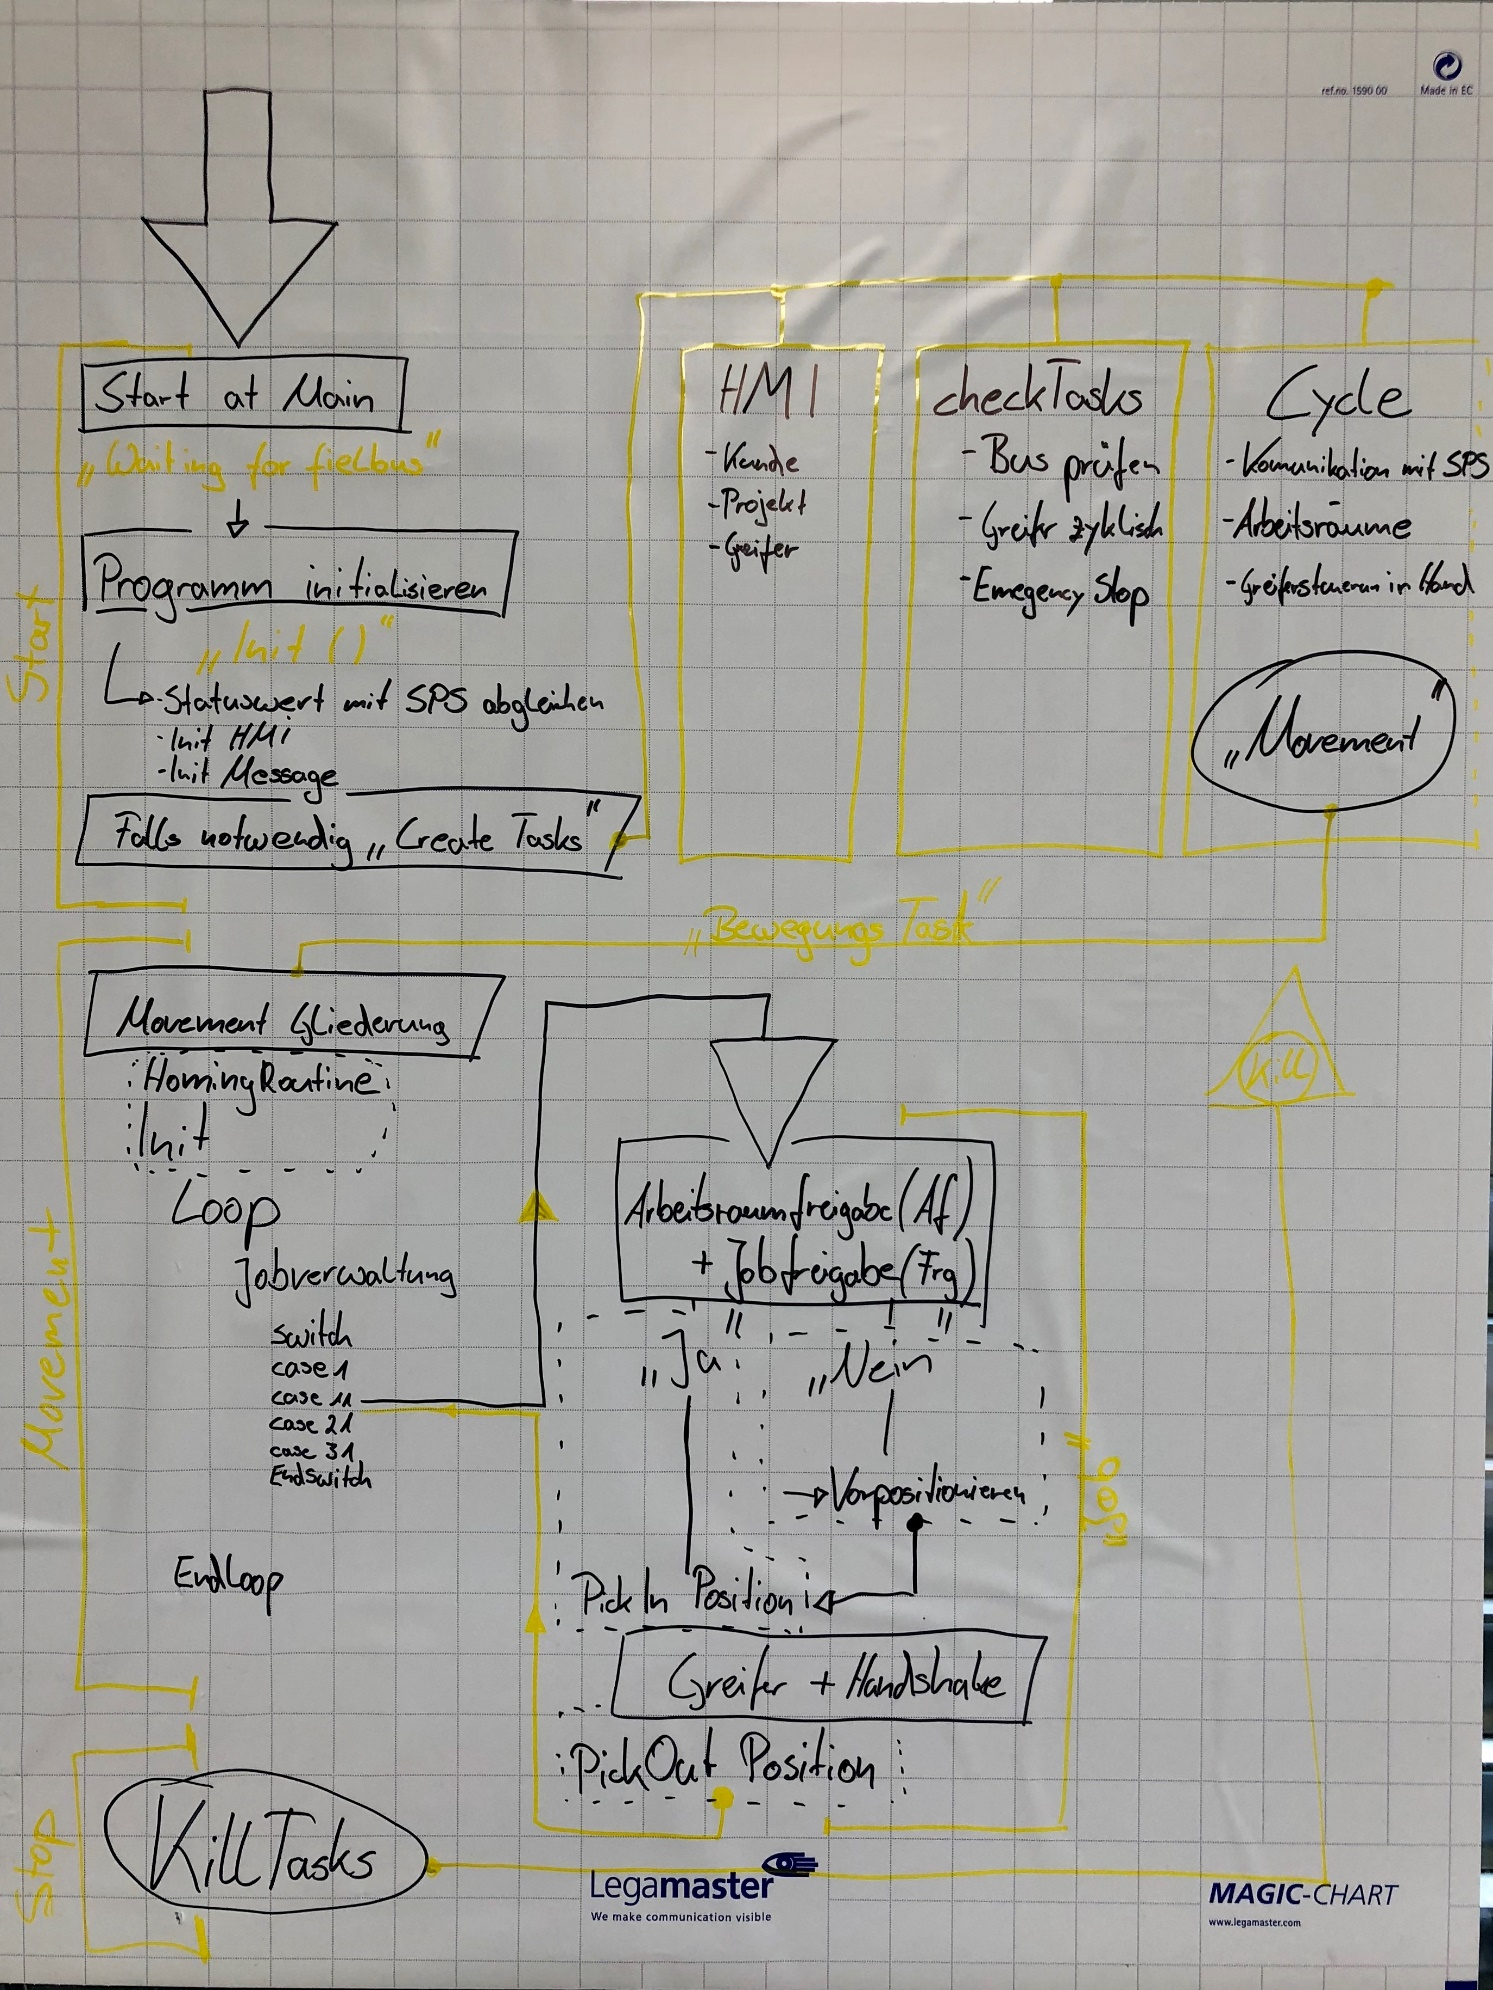 ref.no. 1590 00
Made in EC
Start at Main
„Waiting for fielbus"
Programm initialisieren
„Init ()"
Start
- Statuswert mit SPS abgleichen
- Init HMi
- Init Message
Falls notwendig „Create Tasks"
HMI
- Kunde
- Projekt
- Greifer
checkTasks
- Bus prüfen
- Greifr zyklisch
- Emegency Stop
Cycle
- Komunikation mit SPS
- Arbeitsräume
- Greifersteuerun in Hand
„Movement"
„Bewegungs Task"
Movement
Movement Gliederung
HomingRoutine
Init
Loop
Jobverwaltung
switch
case 1
case 11
case 21
case 31
Endswitch
EndLoop
Arbeitsraumfreigabe (Af)
+ Jobfreigabe (Frg)
„Ja"
„Nein"
→ Vorpositionieren
PickIn Position
Greifer + Handshake
PickOut Position
"Job"
Kill
Stop
KillTasks
Legamaster
We make communication visible
MAGIC-CHART
www.legamaster.com